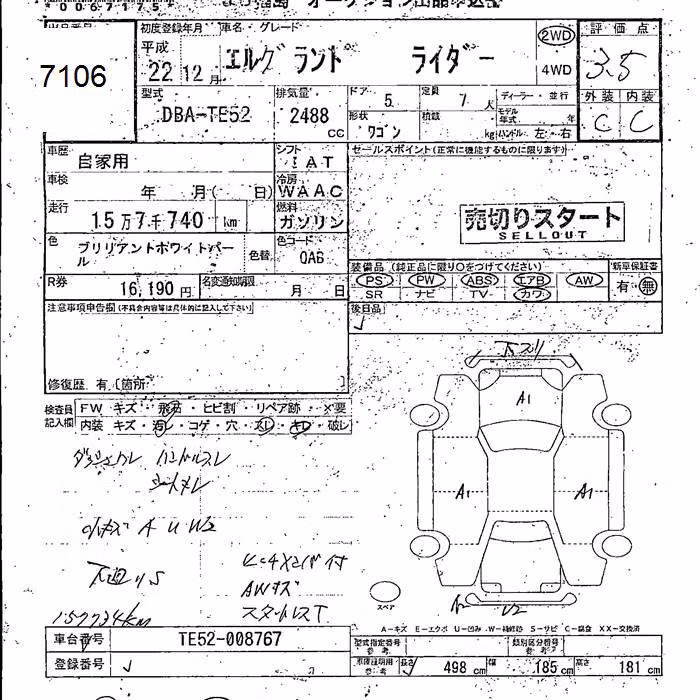 7106
初度登録年月 車名・グレード
平成 22 12月
エルグランド ライダー
2WD
4WD
評価点
3.5
外装 内装
C C
型式
DBA-TE52
排気量
2488 cc
ドア 5
定員 7人
ディーラー・並行
モデル年式 年
形状 ワゴン
積載 kg
ハンドル 左・右
車歴 自家用
シフト IAT
セールスポイント(正常に機能するものに限ります)
車検 年 月( 日)
冷房 WAAC
走行 15万7千740 km
燃料 ガソリン
売切りスタート
SELLOUT
色 ブリリアントホワイトパール
色替
色コード 0A6
装備品 (純正品に限り○をつけてください)
新車保証書
PS PW ABS エアB AW
有・無
SR ナビ TV カワ
R券 16,190円
名変通知期限 月 日
後日品
注意事項申告欄(不具合内容等は具体的に記入して下さい)
修復歴 有 [箇所 ]
検査員記入欄
FW キズ・飛石・ヒビ割・リペア跡・×要
内装 キズ・汚レ・コゲ・穴・スレ・キレ・破レ
ハンドルスレ
A U W2
AWキズ
スタットレスT
157734km
下スリ
A1
A1
A1
U2
スペア
A-キズ E-エクボ U-凹み W-補修跡 S-サビ C-腐食 XX-交換済
車台番号 TE52-008767
登録番号
型式指定番号 参考
類別区分番号 参考
車庫証明用 参考
長さ 498cm 幅 185cm 高さ 181cm